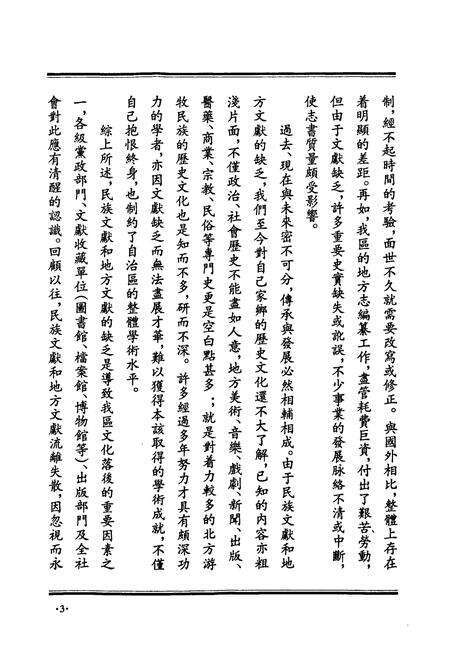 制，經不起時間的考驗，面世不久就需要改寫或修正。與國外相比，整體上存在
着明顯的差距。再如，我區的地方志編纂工作，儘管耗費巨資，付出了艱苦勞動，
但由于文獻缺乏，許多重要史實缺失或訛誤，不少事業的發展脉絡不清或中斷，
使志書質量頗受影響。
過去、現在與未來密不可分，傳承與發展必然相輔相成。由于民族文獻和地
方文獻的缺乏，我們至今對自己家鄉的歷史文化還不大了解，已知的内容亦粗
淺片面，不僅政治、社會歷史不能盡如人意，地方美術、音樂、戲劇、新聞、出版、
醫藥、商業、宗教、民俗等專門史更是空白點甚多；就是對着力較多的北方游
牧民族的歷史文化也是知而不多，研而不深。許多經過多年努力才具有頗深功
力的學者，亦因文獻缺乏而無法盡展才華，難以獲得本該取得的學術成就，不僅
自己抱恨終身，也制約了自治區的整體學術水平。
綜上所述，民族文獻和地方文獻的缺乏是導致我區文化落後的重要因素之
一，各級黨政部門、文獻收藏單位（圖書館、檔案館、博物館等）、出版部門及全社
會對此應有清醒的認識。回顧以往，民族文獻和地方文獻流離失散，因忽視而永
·3·